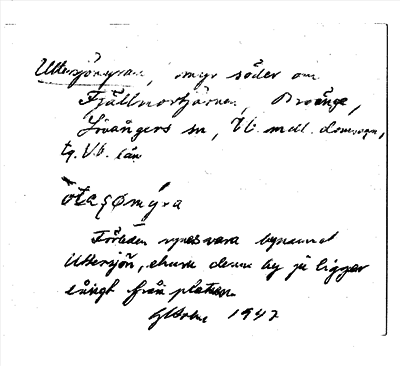 Uttersjömyran, myr söder om
Fjällnortjärnen, Broänge,
Lövångers sn, V.b. mdl. domsagn,
tg. V.b. län
òtəʂǿmýra
Förleden synes vara bynamnet
Uttersjön, ehuru denna by ju ligger
långt från platsen.
1947